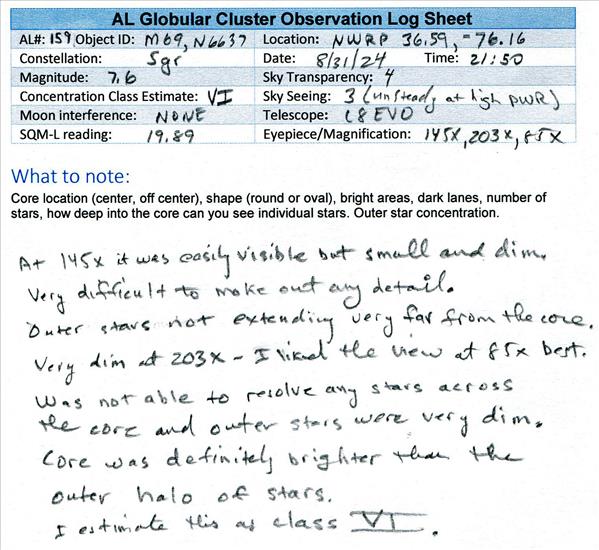 AL Globular Cluster Observation Log Sheet
AL#: 159 Object ID: M69, N6637 Location: NWRP 36.59, -76.16
Constellation: Sgr Date: 8/31/24 Time: 21:50
Magnitude: 7.6 Sky Transparency: 4
Concentration Class Estimate: VI Sky Seeing: 3 (unsteady at high pwr)
Moon interference: NONE Telescope: C8 EVO
SQM-L reading: 19.89 Eyepiece/Magnification: 145x, 203x, 85x
What to note:
Core location (center, off center), shape (round or oval), bright areas, dark lanes, number of
stars, how deep into the core can you see individual stars. Outer star concentration.
At 145x it was easily visible but small and dim.
Very difficult to make out any detail.
Outer stars not extending very far from the core.
Very dim at 203x - I liked the view at 85x best.
Was not able to resolve any stars across
the core and outer stars were very dim.
Core was definitely brighter than the
outer halo of stars.
I estimate this as class VI.